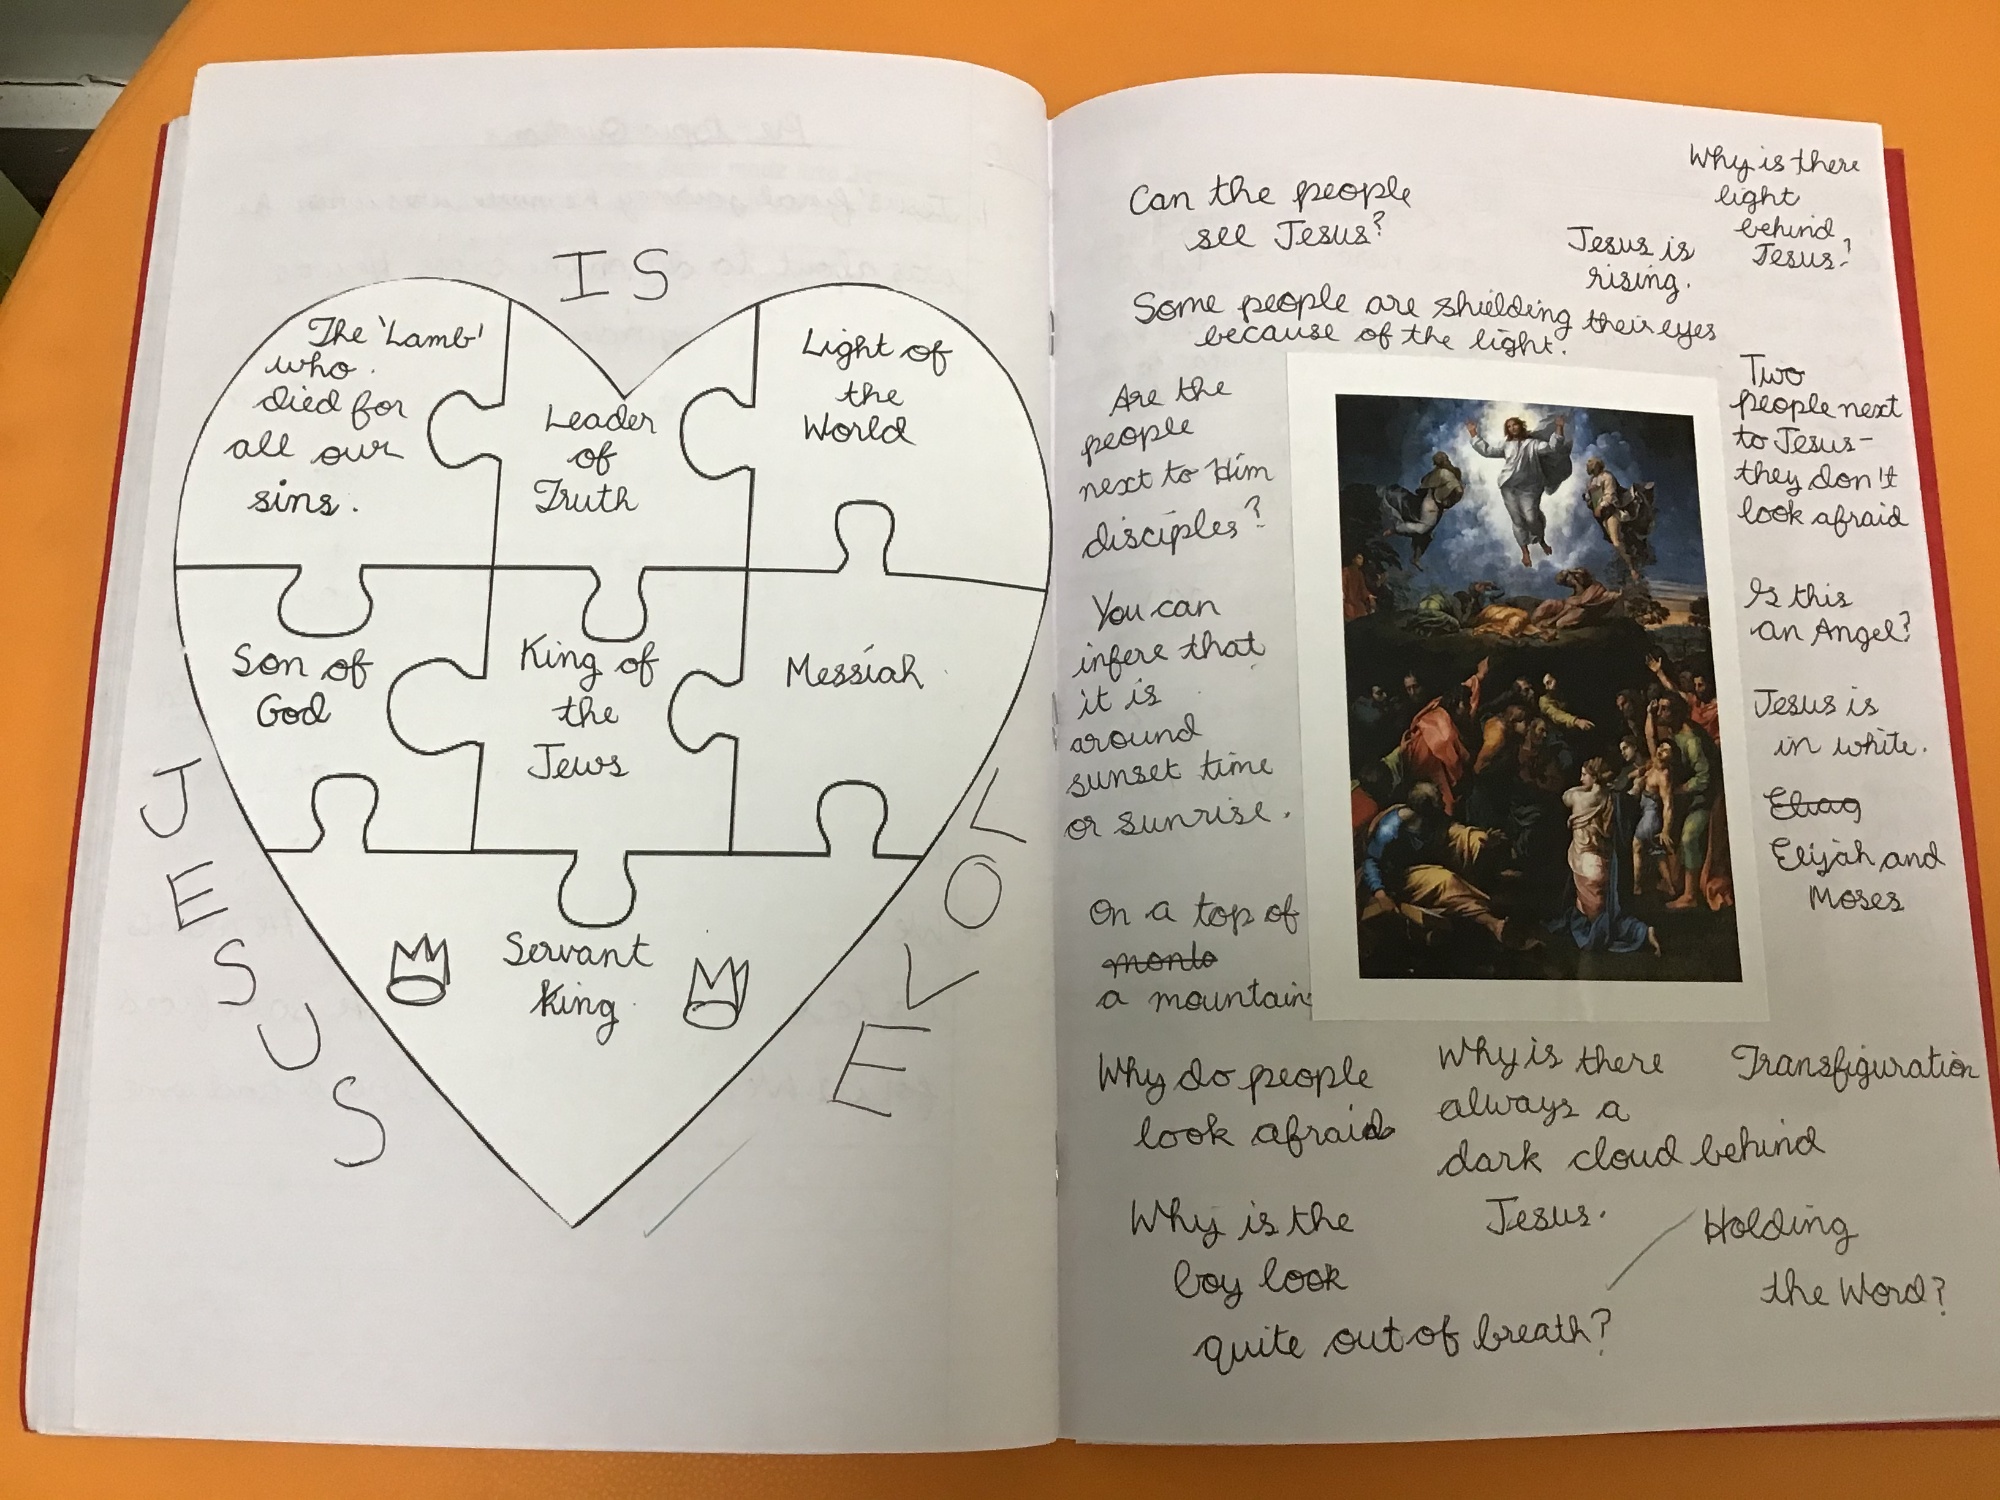 IS
JESUS
LOVE
The 'Lamb'
who
died for
all our
sins.
Leader
of
Truth
Light of
the
World
Son of
God
King of
the
Jews
Messiah
Servant
King
Can the people
see Jesus?
Jesus is
rising.
Why is there
light
behind
Jesus?
Some people are shielding their eyes
because of the light.
Are the
people
next to Him
disciples?
You can
infere that
it is
around
sunset time
or sunrise.
On a top of
a mountain
Two
people next
to Jesus-
they don't
look afraid
Is this
an Angel?
Jesus is
in white.
Elijah and
Moses
Why do people
look afraid
Why is there
always a
dark cloud behind
Jesus.
Transfiguration
Why is the
boy look
quite out of breath?
Holding
the Word?